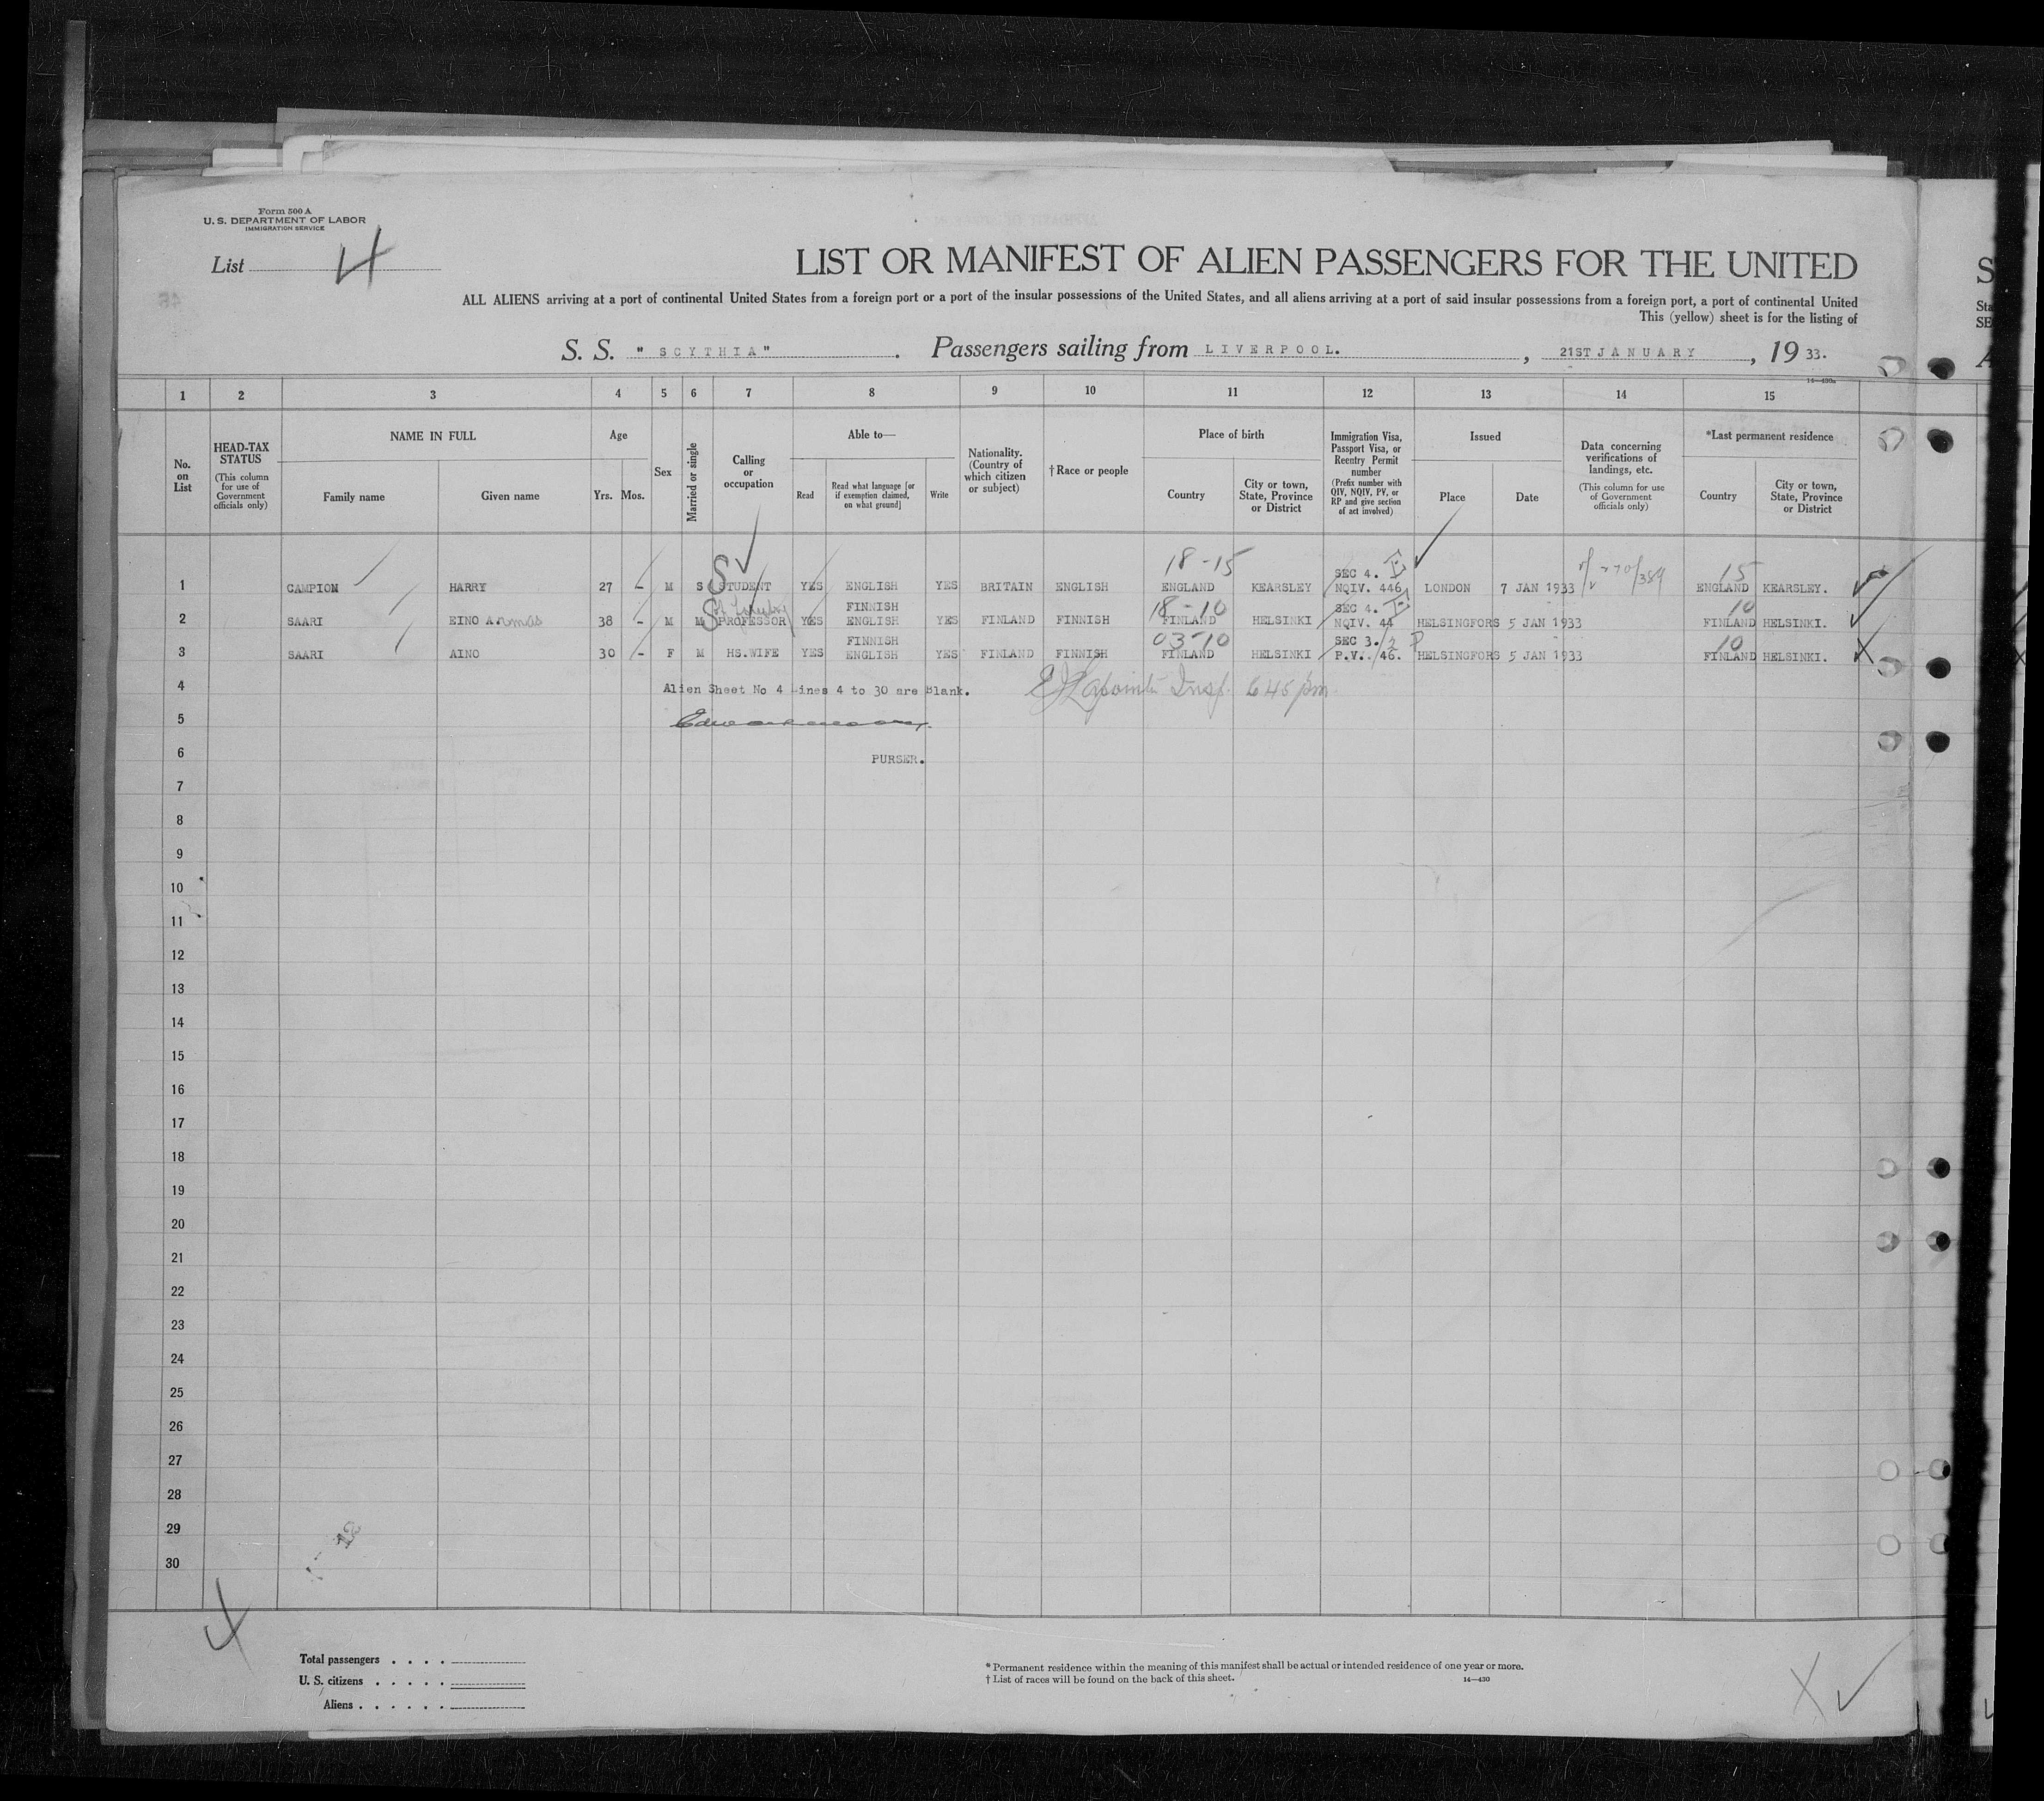 Form 500 A
U. S. DEPARTMENT OF LABOR
IMMIGRATION SERVICE
List 4
LIST OR MANIFEST OF ALIEN PASSENGERS FOR THE UNITED
ALL ALIENS arriving at a port of continental United States from a foreign port or a port of the insular possessions of the United States, and all aliens arriving at a port of said insular possessions from a foreign port, a port of continental United
This (yellow) sheet is for the listing of
S. S. "SCYTHIA". Passengers sailing from LIVERPOOL. , 21ST JANUARY , 19 33.
14—430a
1 2 3 4 5 6 7 8 9 10 11 12 13 14 15
No. on List
HEAD-TAX STATUS
(This column for use of Government officials only)
NAME IN FULL
Family name Given name
Age
Yrs. Mos.
Sex
Married or single
Calling or occupation
Able to—
Read
Read what language [or if exemption claimed, on what ground]
Write
Nationality. (Country of which citizen or subject)
†Race or people
Place of birth
Country
City or town, State, Province or District
Immigration Visa, Passport Visa, or Reentry Permit number
(Prefix number with QIV, NQIV, PV, or RP and give section of act involved)
Issued
Place Date
Data concerning verifications of landings, etc.
(This column for use of Government officials only)
*Last permanent residence
Country
City or town, State, Province or District
18-15 SEC 4. E 15
1 CAMPION HARRY 27 - M S S STUDENT YES ENGLISH YES BRITAIN ENGLISH ENGLAND KEARSLEY NQIV. 446 LONDON 7 JAN 1933 ENGLAND KEARSLEY.
FINNISH 18-10 SEC 4. E 10
2 SAARI EINO A.rmas 38 - M M S PROFESSOR YES ENGLISH YES FINLAND FINNISH FINLAND HELSINKI NQIV. 44 HELSINGFORS 5 JAN 1933 FINLAND HELSINKI.
FINNISH 03-10 SEC 3./2 P 10
3 SAARI AINO 30 - F M HS.WIFE YES ENGLISH YES FINLAND FINNISH FINLAND HELSINKI P.V. 46. HELSINGFORS 5 JAN 1933 FINLAND HELSINKI.
4 Alien Sheet No 4 Lines 4 to 30 are Blank. E J Lapointe Insp. 6 45 pm
5
6 PURSER.
7
8
9
10
11
12
13
14
15
16
17
18
19
20
21
22
23
24
25
26
27
28
29
30
4
Total passengers
U. S. citizens
Aliens
* Permanent residence within the meaning of this manifest shall be actual or intended residence of one year or more.
† List of races will be found on the back of this sheet.
14—430